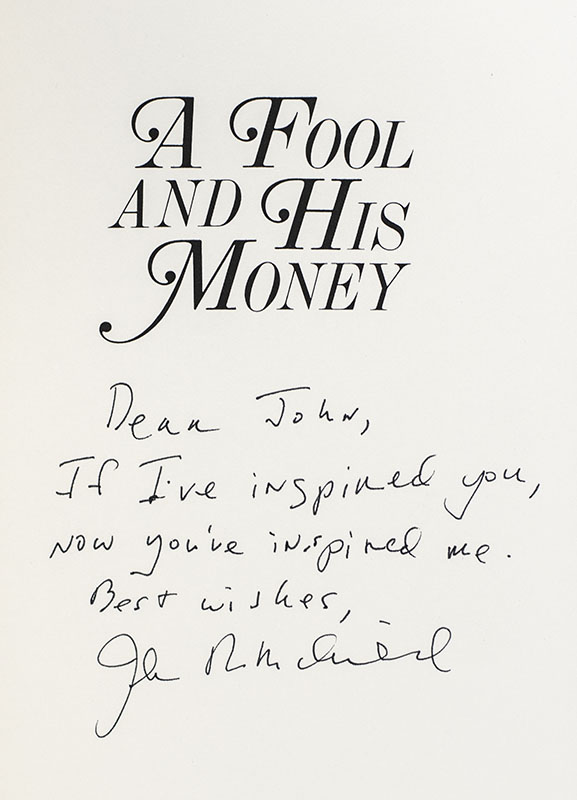 A FOOL
AND HIS
MONEY
Dear John,
If I've inspired you,
now you've inspired me.
Best wishes,
John